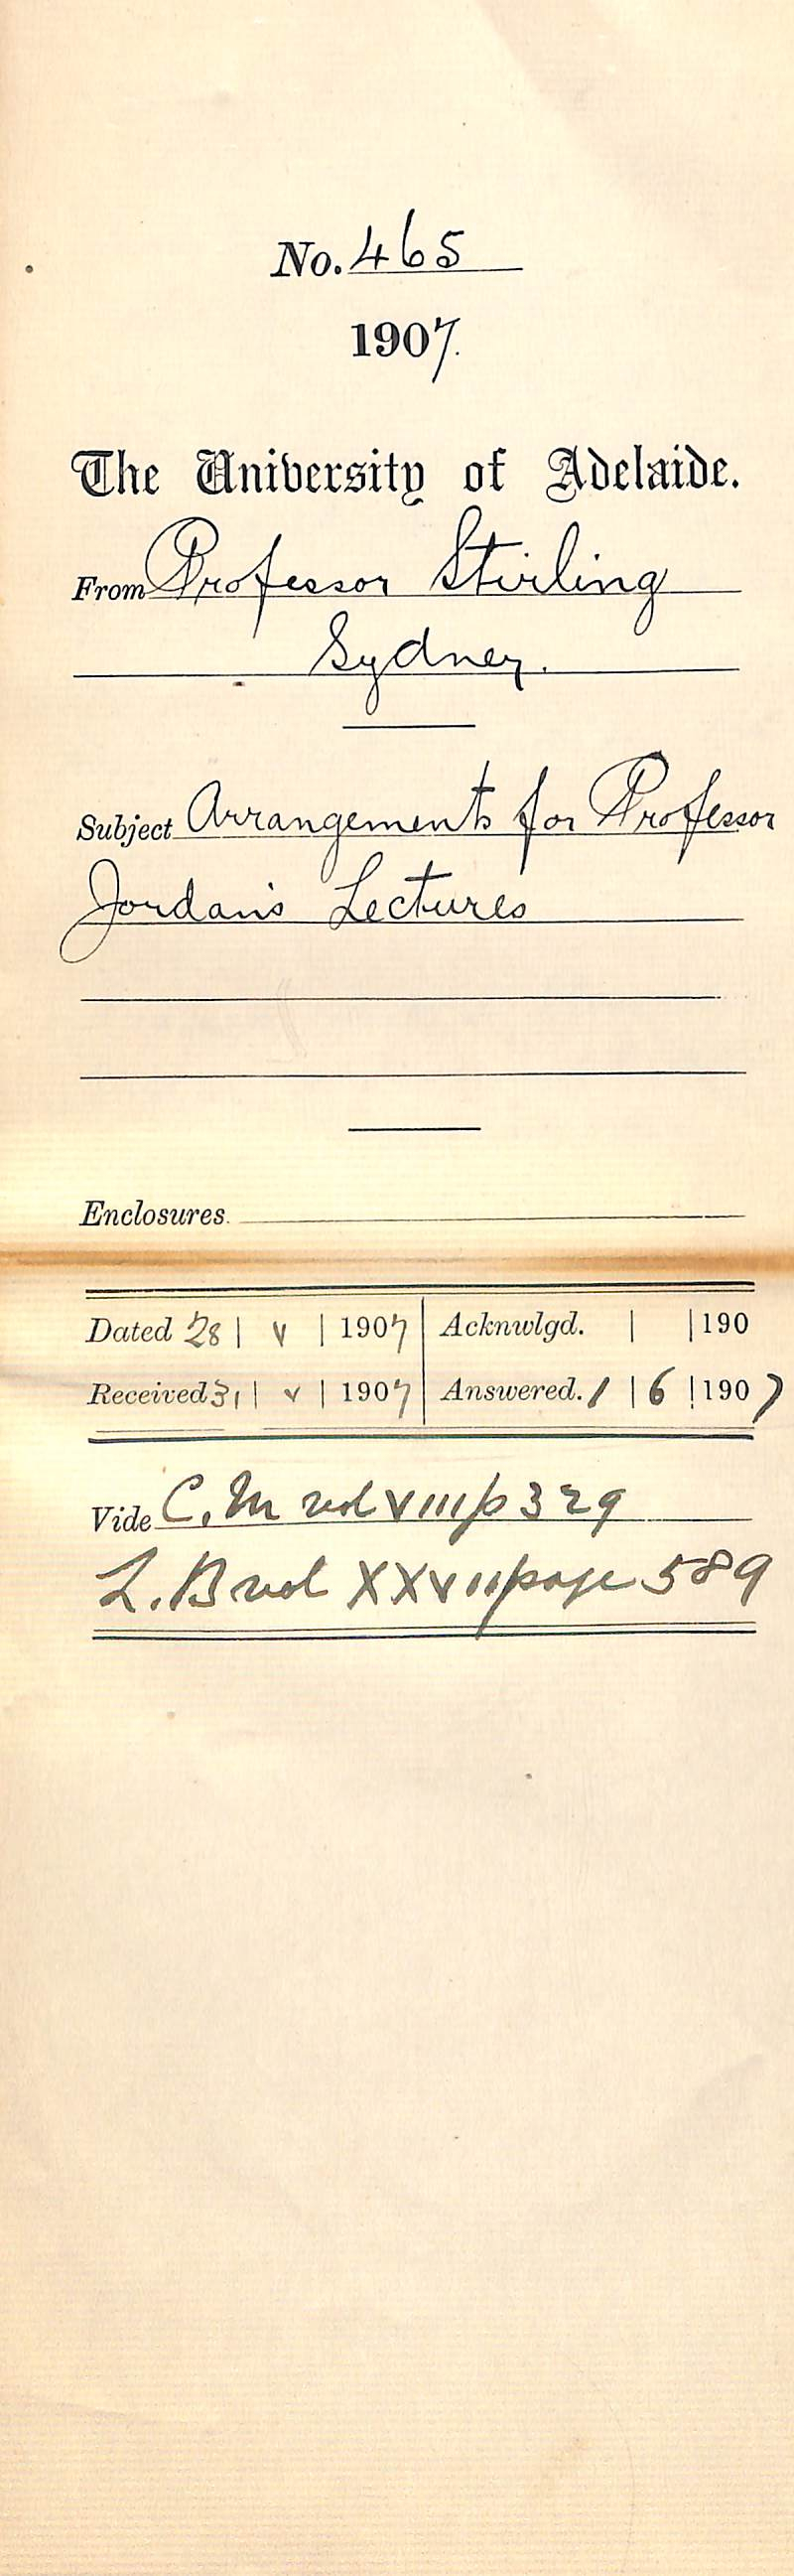 No. 465
1907.
The University of Adelaide.
From Professor Stirling
Sydney.
Subject Arrangements for Professor
Jordan's Lectures
Enclosures.
Dated 28 | V | 1907 | Acknwlgd. | | 190
Received 31 | V | 1907 | Answered. 1 | 6 | 1907
Vide C. M vol VIII p 329
L. B vol XXVII page 589